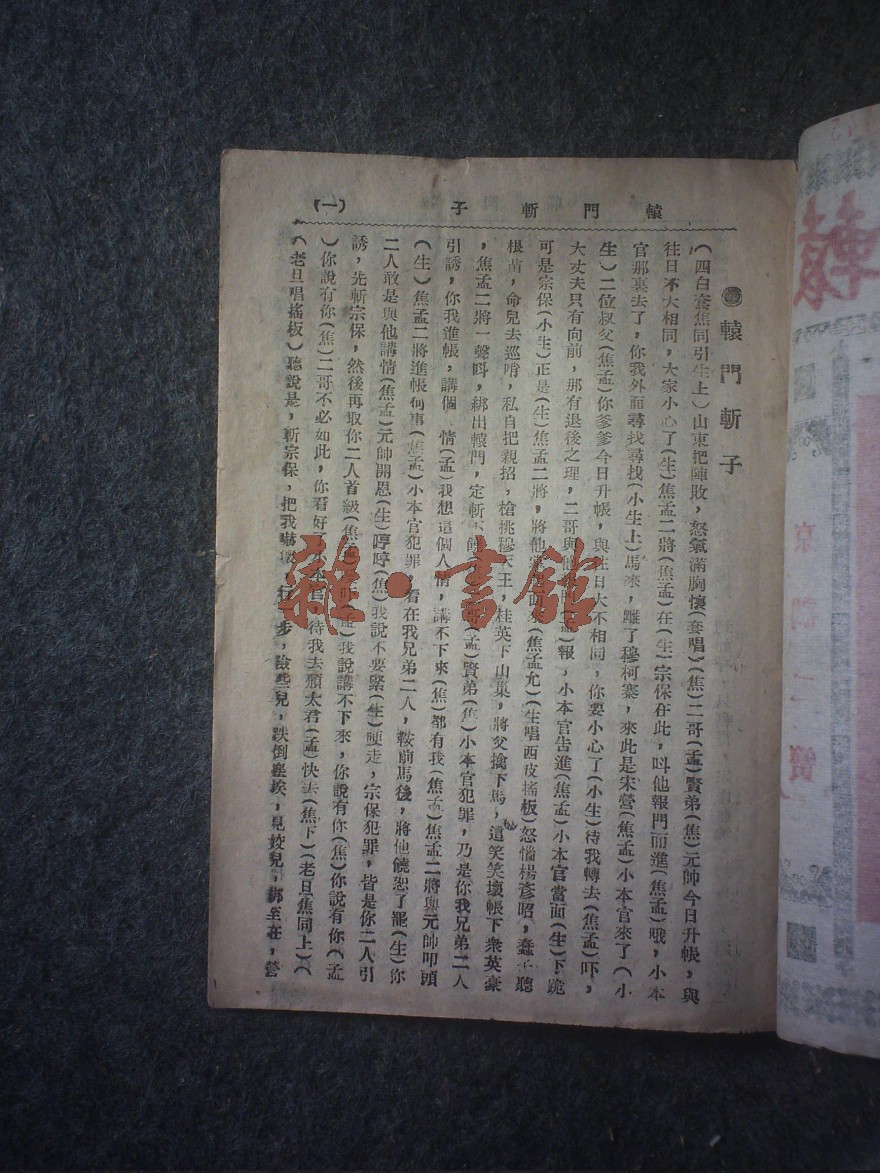 轅門斬子
(一)
轅門斬子
(四白套焦同引生上)山東把陣敗,怒氣滿胸懷(套唱)(焦)二哥(孟)賢弟(焦)元帥今日升帳,與
往日不大相同,大家小心了(生)焦孟二將(焦孟)在(生)宗保在此,呌他報門而進(焦孟)哦,小本
官那裏去了,你我外面尋找尋找(小生上)馬來,離了穆柯寨,來此是宋營(焦孟)小本官來了(小
生)二位叔父(焦孟)你爹爹今日升帳,與往日大不相同,你要小心了(小生)待我轉去(焦孟)吓,
大丈夫只有向前,那有退後之理,二哥與他報門(孟)報,小本官告進(焦孟)小本官當面(生)下跪
可是宗保(小生)正是(生)焦孟二將,將他(焦孟允)(生唱西皮搖板)怒惱楊彥昭,蠢子聽
根苗,命兒去巡哨,私自把親招,槍挑穆天王,桂英下山巢,將父擒下馬,這笑笑壞帳下衆英豪
,焦孟二將一聲呌,綁出轅門,定斬不(孟)賢弟(焦)小本官犯罪,乃是你我兄弟二人
引誘,你我進帳,講個人情(孟)我想這個人情,講不下來(焦)都有我(焦孟)焦孟二將與元帥叩頭
(生)焦孟二將進帳何事(焦孟)小本官犯罪,看在我兄弟二人,鞍前馬後,將他饒恕了罷(生)你
二人敢是與他講情(焦孟)元帥開恩(生)哼哼(焦)我說不要緊(生)唗走,宗保犯罪,皆是你二人引
誘,先斬宗保,然後再取你二人首級(焦孟)(孟)我說講不下來,你說有你(焦)你說有你(孟
)你說有你(焦)二哥不必如此,你看好了小本官,待我去願太君(孟)快去(焦下)(老旦焦同上)(
(老旦唱搖板)聽說是,斬宗保,把我嚇壞,行步,險些兒,跌倒塵埃,見姣兒,綁至在,營
雜·書館
京